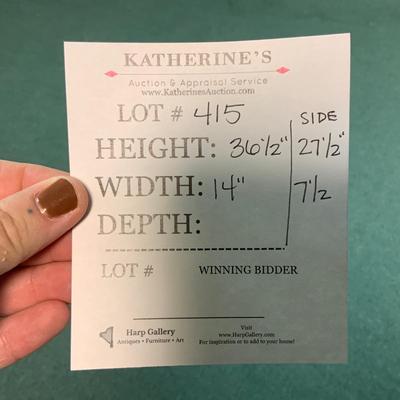 KATHERINE'S
Auction & Appraisal Service
www.KatherinesAuction.com
LOT # 415
SIDE
HEIGHT: 36 1/2" 27 1/2"
WIDTH: 14" 7 1/2
DEPTH:
LOT # WINNING BIDDER
Harp Gallery
Antiques • Furniture • Art
Visit
www.HarpGallery.com
For inspiration or to add to your home!